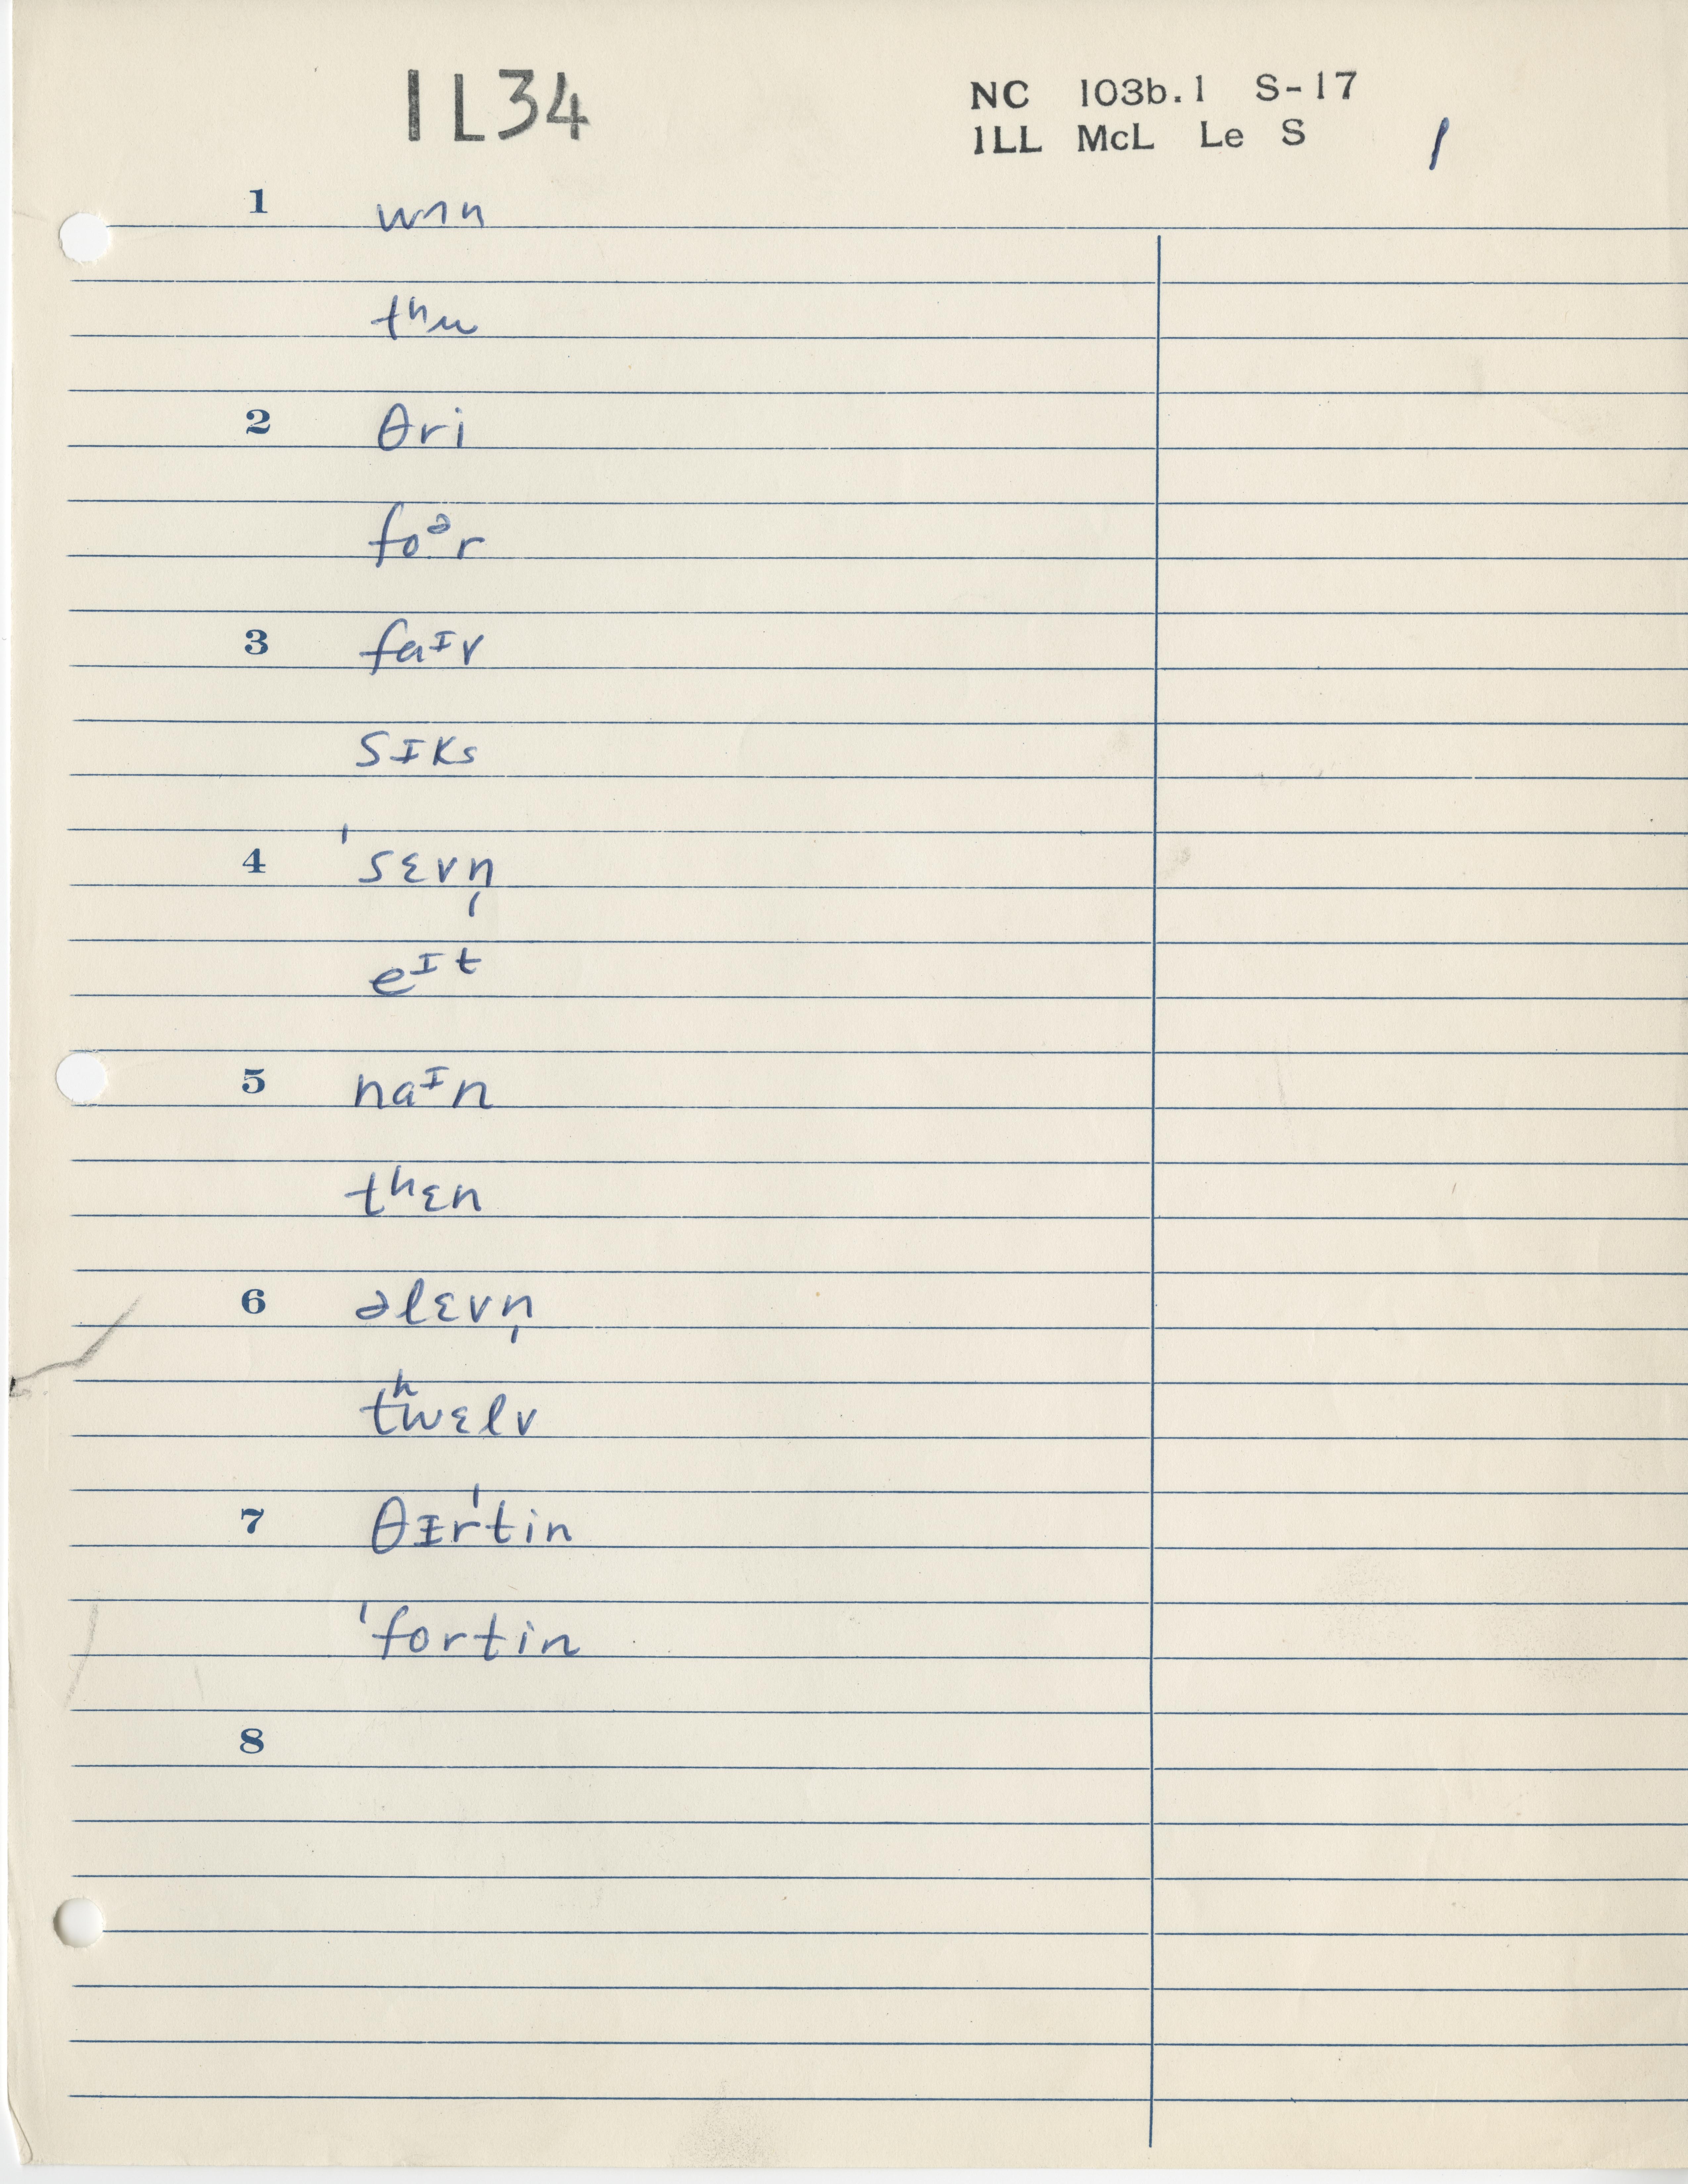 IL34
NC 103b.1 S-17
ILL McL Le S
1
1 wʌn
tʰu
2 θri
foᵊr
3 faᶦv
sɪks
4 ˈsɛvn̩
eᶦt
5 naᶦn
tʰɛn
6 əlɛvn̩
tʰwɛlv
7 θɪrˈtin
ˈfortin
8